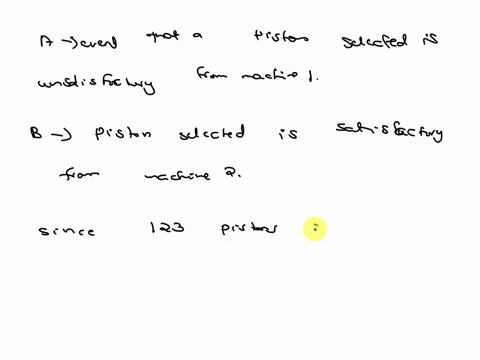 A → event that a piston selected is
unsatisfactory from machine 1.
B → piston selected is satisfactory
from machine 2.
since 123 pistons i